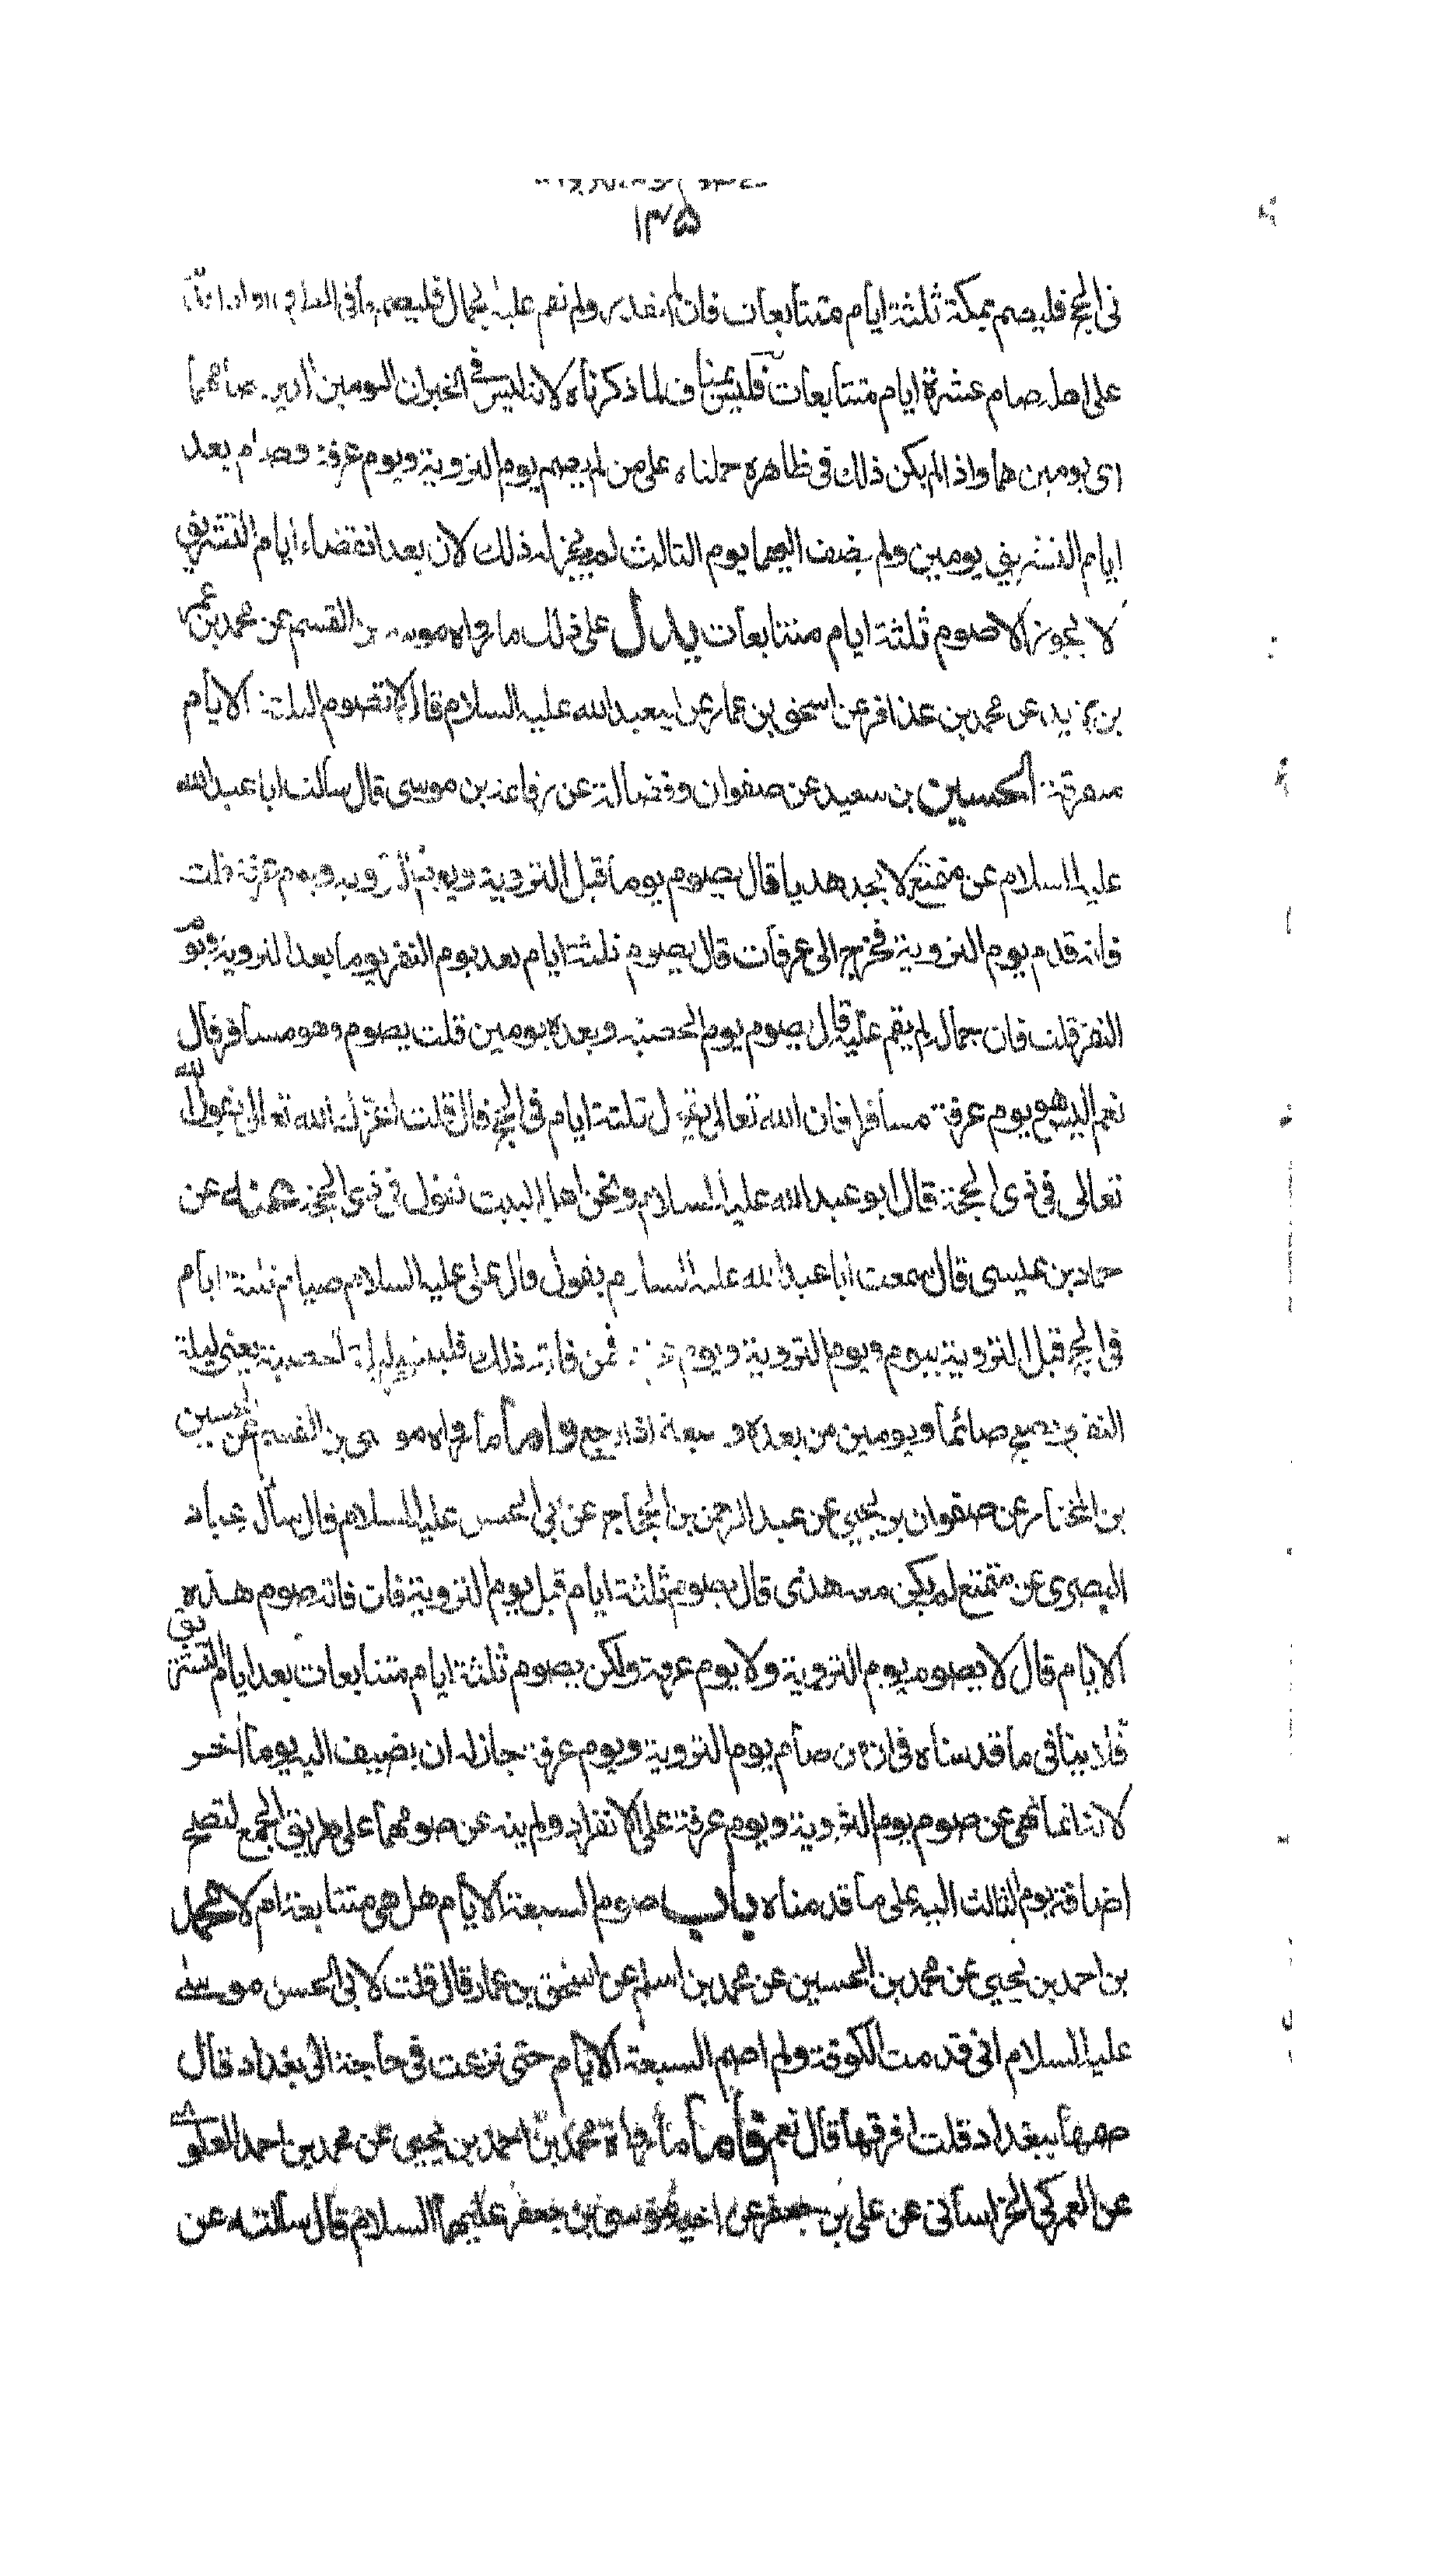 ١٣٥
فى الحج فليصم بمكة ثلثة ايام متتابعات فان لم يقدر ولم يقم عليه الجمال فليصمها فى الطريق او اذا قدم
على اهله صام عشرة ايام متتابعات فليس بمناف لما ذكرناه لانه ليس فى الخبر ان اليومين الذين صامهما
اى يومين هما واذا لم يكن ذلك فى ظاهره حملناه على من لم يصم يوم التروية ويوم عرفة وصام بعد
ايام التشريق يومين ولم يضف اليهما يوم الثالث لم يجز له ذلك لان بعد انقضاء ايام التشريق
لا يجوز الا صوم ثلثة ايام متتابعات يدل على ذلك ما رواه موسى بن القسم عن محمد بن عمر
بن يزيد عن محمد بن عذافر عن اسحق بن عمار عن ابيعبدالله عليه السلام قال لا تصوم الثلثة الايام
متفرقة الحسين بن سعيد عن صفوان وفضالة عن رفاعة بن موسى قال سالت ابا عبدالله
عليه السلام عن متمتع لا يجد هديا قال يصوم يوما قبل التروية ويوم التروية ويوم عرفة قلت
فانه قدم يوم التروية فخرج الى عرفات قال يصوم ثلثة ايام بعد يوم النفر يوما بعد التروية ويوم
النفر قلت فان جمال لم يقم عليه قال يصوم يوم الحصبة وبعده يومين قلت يصوم وهو مسافر قال
نعم اليس هو يوم عرفة مسافرا فان الله تعالى يقول ثلثة ايام فى الحج قال قلت اعزك الله تعالى يقول الله
تعالى فى ذى الحجة قال ابو عبد الله عليه السلام ونحن اهل البيت نقول فى ذى الحجة عنه عن
حماد بن عيسى قال سمعت ابا عبد الله عليه السلام يقول قال على عليه السلام صيام ثلثة ايام
فى الحج قبل التروية بيوم ويوم التروية ويوم عرفة فمن فاته ذلك فليتسحر ليلة الحصبة يعنى ليلة
النفر ويصبح صائما ويومين من بعده وسبعة اذا رجع واما ما رواه موسى بن القسم عن الحسين
بن المختار عن صفوان بن يحيى عن عبد الرحمن بن الحجاج عن ابى الحسن عليه السلام قال سال عباد
البصرى عن متمتع لم يكن معه هدى قال يصوم ثلثة ايام قبل يوم التروية فان فاته صوم هذه
الايام قال لا يصوم يوم التروية ولا يوم عرفة ولكن يصوم ثلثة ايام متتابعات بعد ايام التشريق
فلا ينافى ما قدمناه فى ان من صام يوم التروية ويوم عرفة جاز له ان يضيف اليه يوما اخر
لانه انما نهى عن صوم يوم التروية ويوم عرفة على الانفراد ولم ينه عن صومهما على طريق الجمع لتصلح
اضافة يوم الثالث اليه على ما قدمناه باب صوم السبعة الايام هل هى متتابعة ام لا محمد
بن احمد بن يحيى عن محمد بن الحسين عن محمد بن اسلم عن اسحق بن عمار قال قلت لابى الحسن موسى
عليه السلام انى قدمت الكوفة ولم اصم السبعة الايام حتى نزعت فى حاجة الى بغداد قال
صمها ببغداد قلت افرقها قال نعم فاما ما رواه محمد بن احمد بن يحيى عن محمد بن احمد العلوى
عن العمركى الخراسانى عن على بن جعفر عن اخيه موسى بن جعفر عليهما السلام قال سالته عن